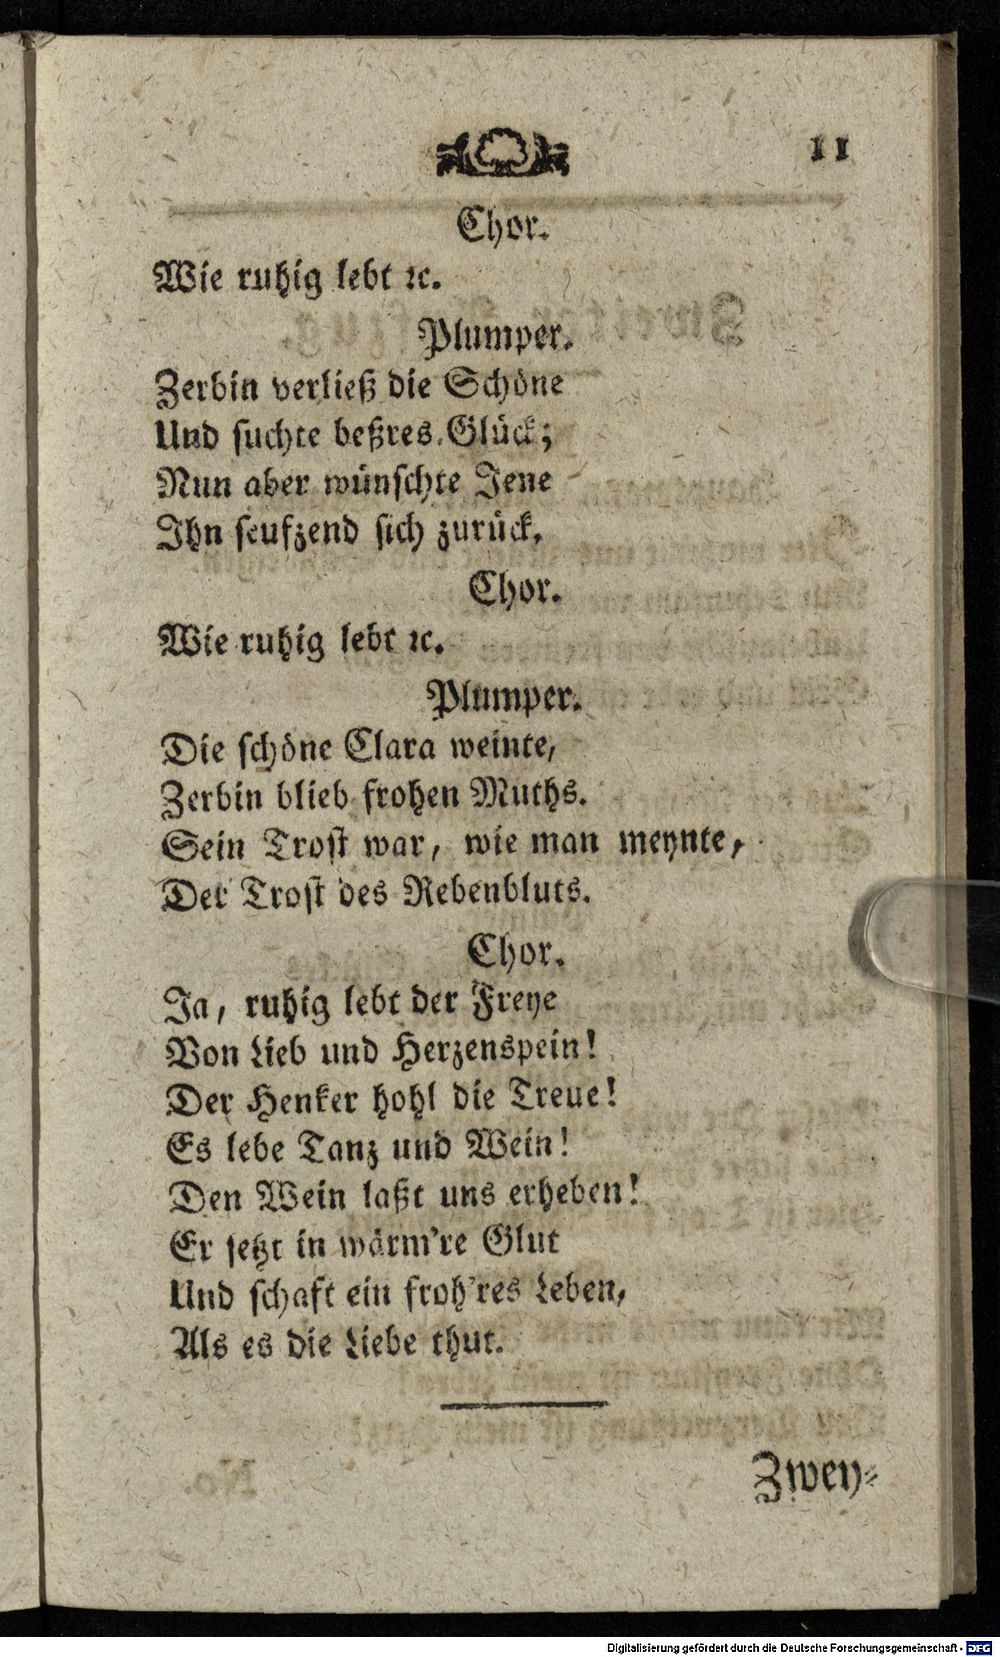 11
Chor.
Wie ruhig lebt ꝛc.
Plumper.
Zerbin verließ die Schöne
Und suchte beßres Glück;
Nun aber wünschte Jene
Ihn seufzend sich zurück.
Chor.
Wie ruhig lebt ꝛc.
Plumper.
Die schöne Clara weinte,
Zerbin blieb frohen Muths.
Sein Trost war, wie man meynte,
Der Trost des Rebenbluts.
Chor.
Ja, ruhig lebt der Freye
Von Lieb und Herzenspein!
Der Henker hohl die Treue!
Es lebe Tanz und Wein!
Den Wein laßt uns erheben!
Er setzt in wärm're Glut
Und schaft ein froh'res Leben,
Als es die Liebe thut.
Zwey-
Digitalisierung gefördert durch die Deutsche Forschungsgemeinschaft - DFG